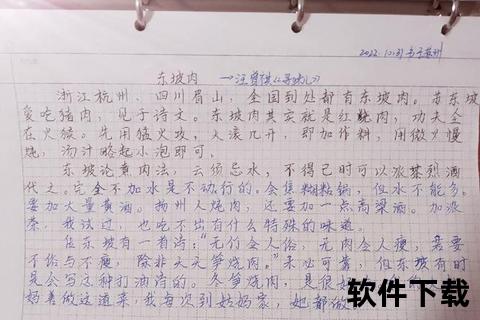 2022.10.31 书于苏州
东坡肉 →汪曾祺《寻味》
浙江杭州、四川眉山，全国到处都有东坡肉。苏东坡
爱吃猪肉，见于诗文。东坡肉其实就是红烧肉，功夫全
在火候。先用猛火攻，大滚几开，即加作料，用微火慢
炖，汤汁略起小泡即可。
东坡论煮肉法，云须忌水，不得已时可以浓茶烈酒
代之。完全不加水是不行的，会焦糊粘锅，但水不能多。
要加大量黄酒。扬州人烧肉，还要加一点高粱酒。加浓
茶，我试过，也吃不出有什么特殊的味道。
传东坡有一首诗："无竹令人俗，无肉令人瘦，若要
不俗与不瘦，除非天天笋烧肉。"未必可靠，但东坡有时
是会写这种打油诗的。冬笋烧肉，是很好
奶善做这道菜，我每次到姑奶家，她都做
软件下载